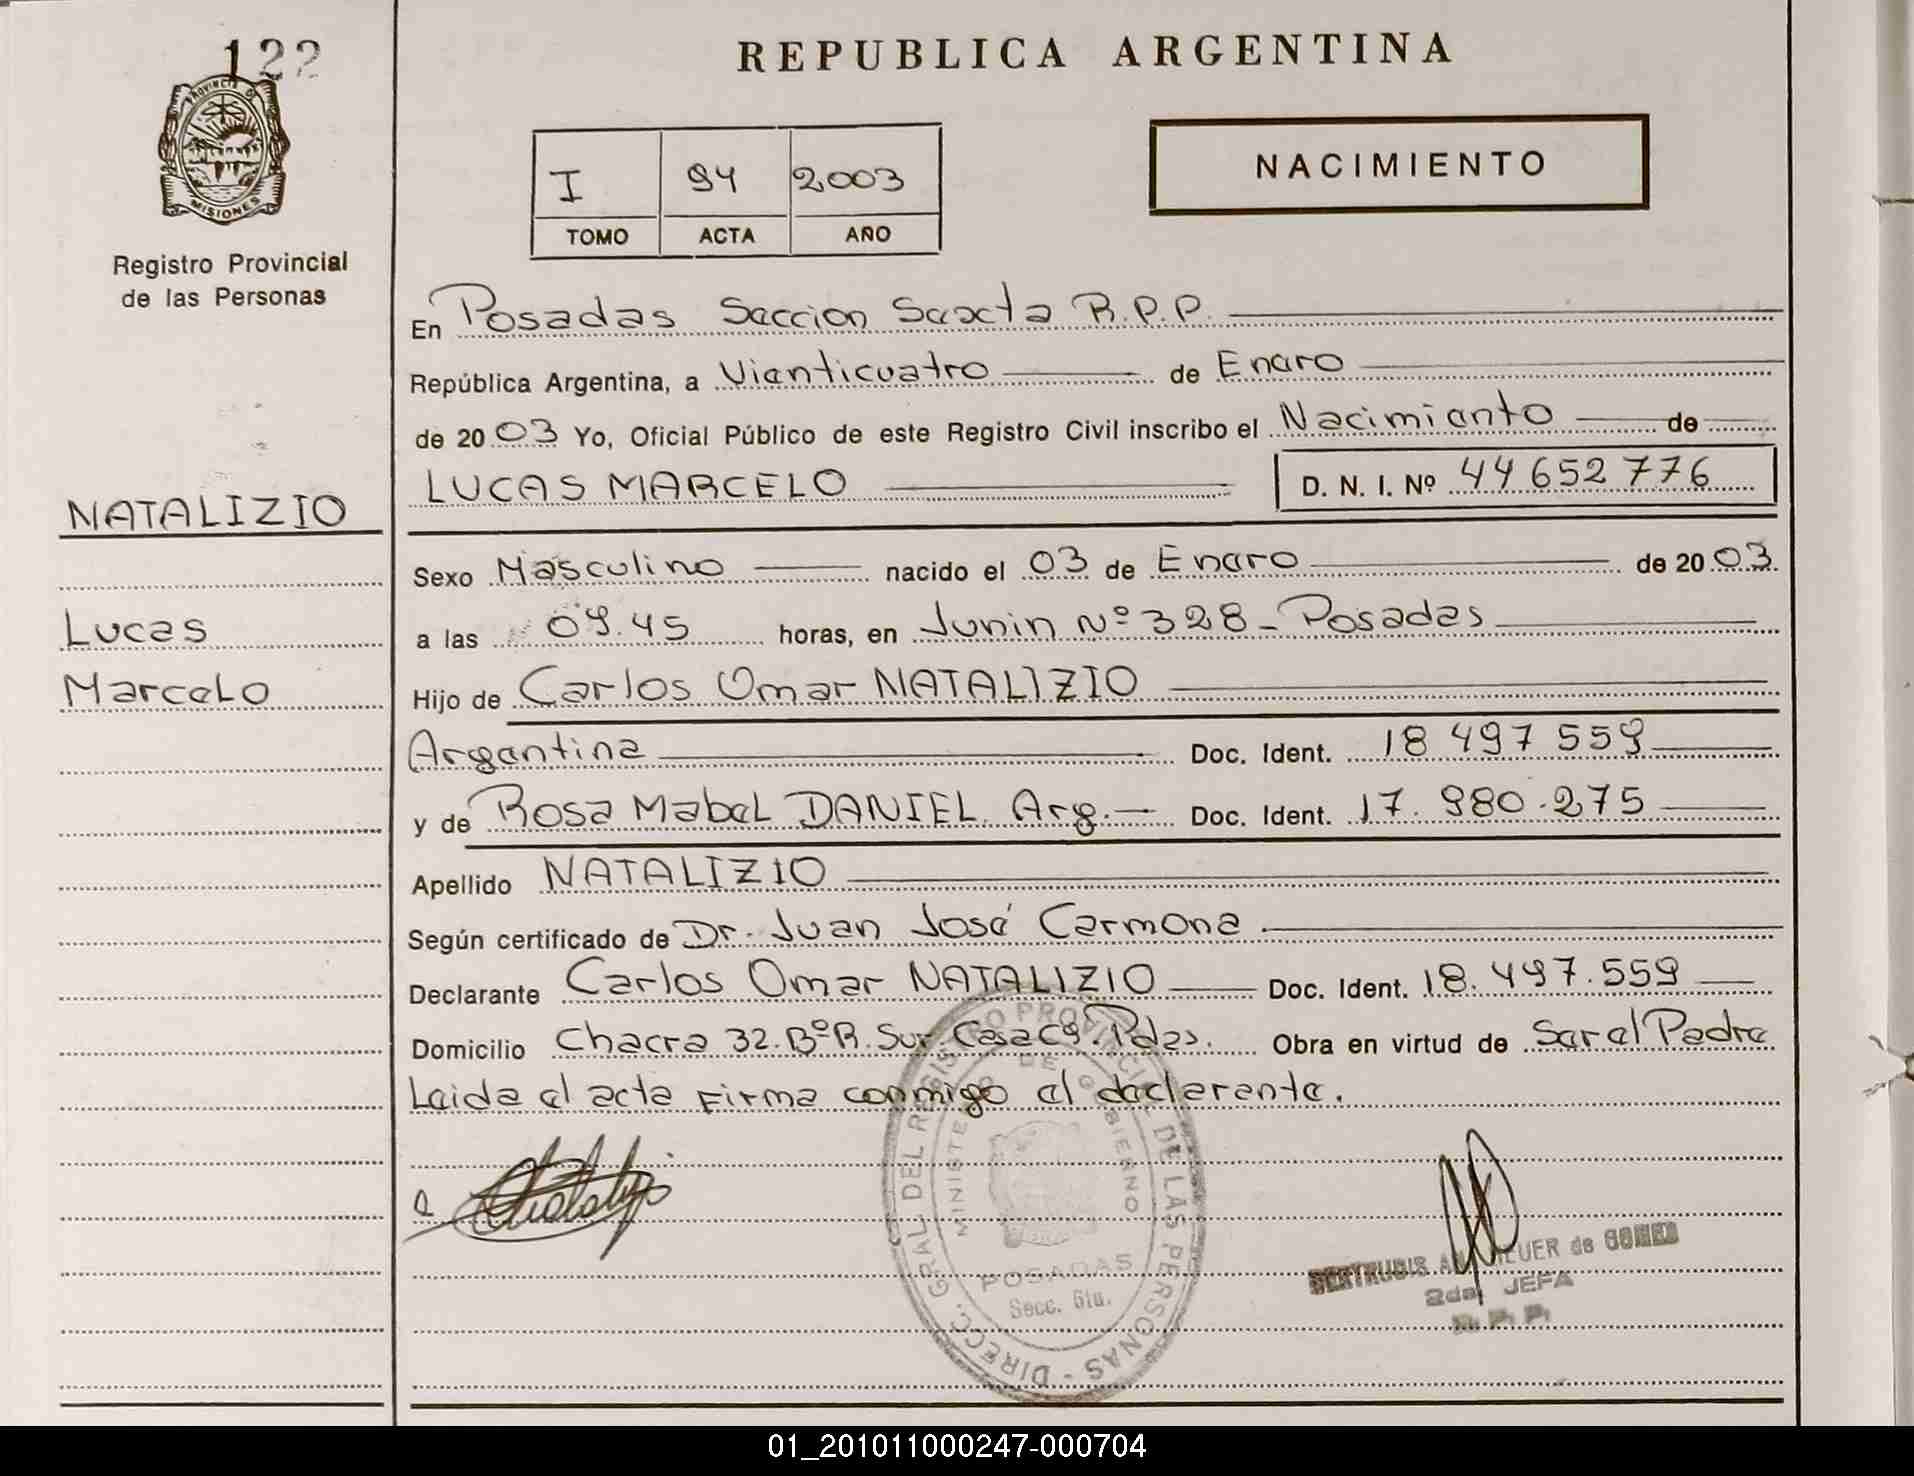 122
PROVINCIA D
MISIONES
Registro Provincial
de las Personas
REPUBLICA ARGENTINA
I 94 2003
TOMO ACTA AÑO
NACIMIENTO
En Posadas Seccion Sexta R.P.P.
República Argentina, a Vienticuatro de Enero
de 2003 Yo, Oficial Público de este Registro Civil inscribo el Nacimiento de
LUCAS MARCELO D. N. I. Nº 44 652 776
NATALIZIO
Lucas
Marcelo
Sexo Masculino nacido el 03 de Enero de 2003
a las 09.45 horas, en Junin Nº 328 - Posadas
Hijo de Carlos Omar NATALIZIO
Argentina Doc. Ident. 18 497 559
y de Rosa Mabel DANIEL Arg. Doc. Ident. 17.980.275
Apellido NATALIZIO
Según certificado de Dr. Juan José Carmona
Declarante Carlos Omar NATALIZIO Doc. Ident. 18.497.559
Domicilio Chacra 32. Bº R. Sur Casa C9. Pdas. Obra en virtud de Ser el Padre
Leida el acta Firma conmigo el declarante.
DIRECC. GRAL DEL REGISTRO PROVINCIAL DE LAS PERSONAS -
MINISTERIO DE GOBIERNO
POSADAS
Secc. 6ta.
GERTRUDIS de GOMEZ
2da. JEFA
R. P. P.
01_201011000247-000704